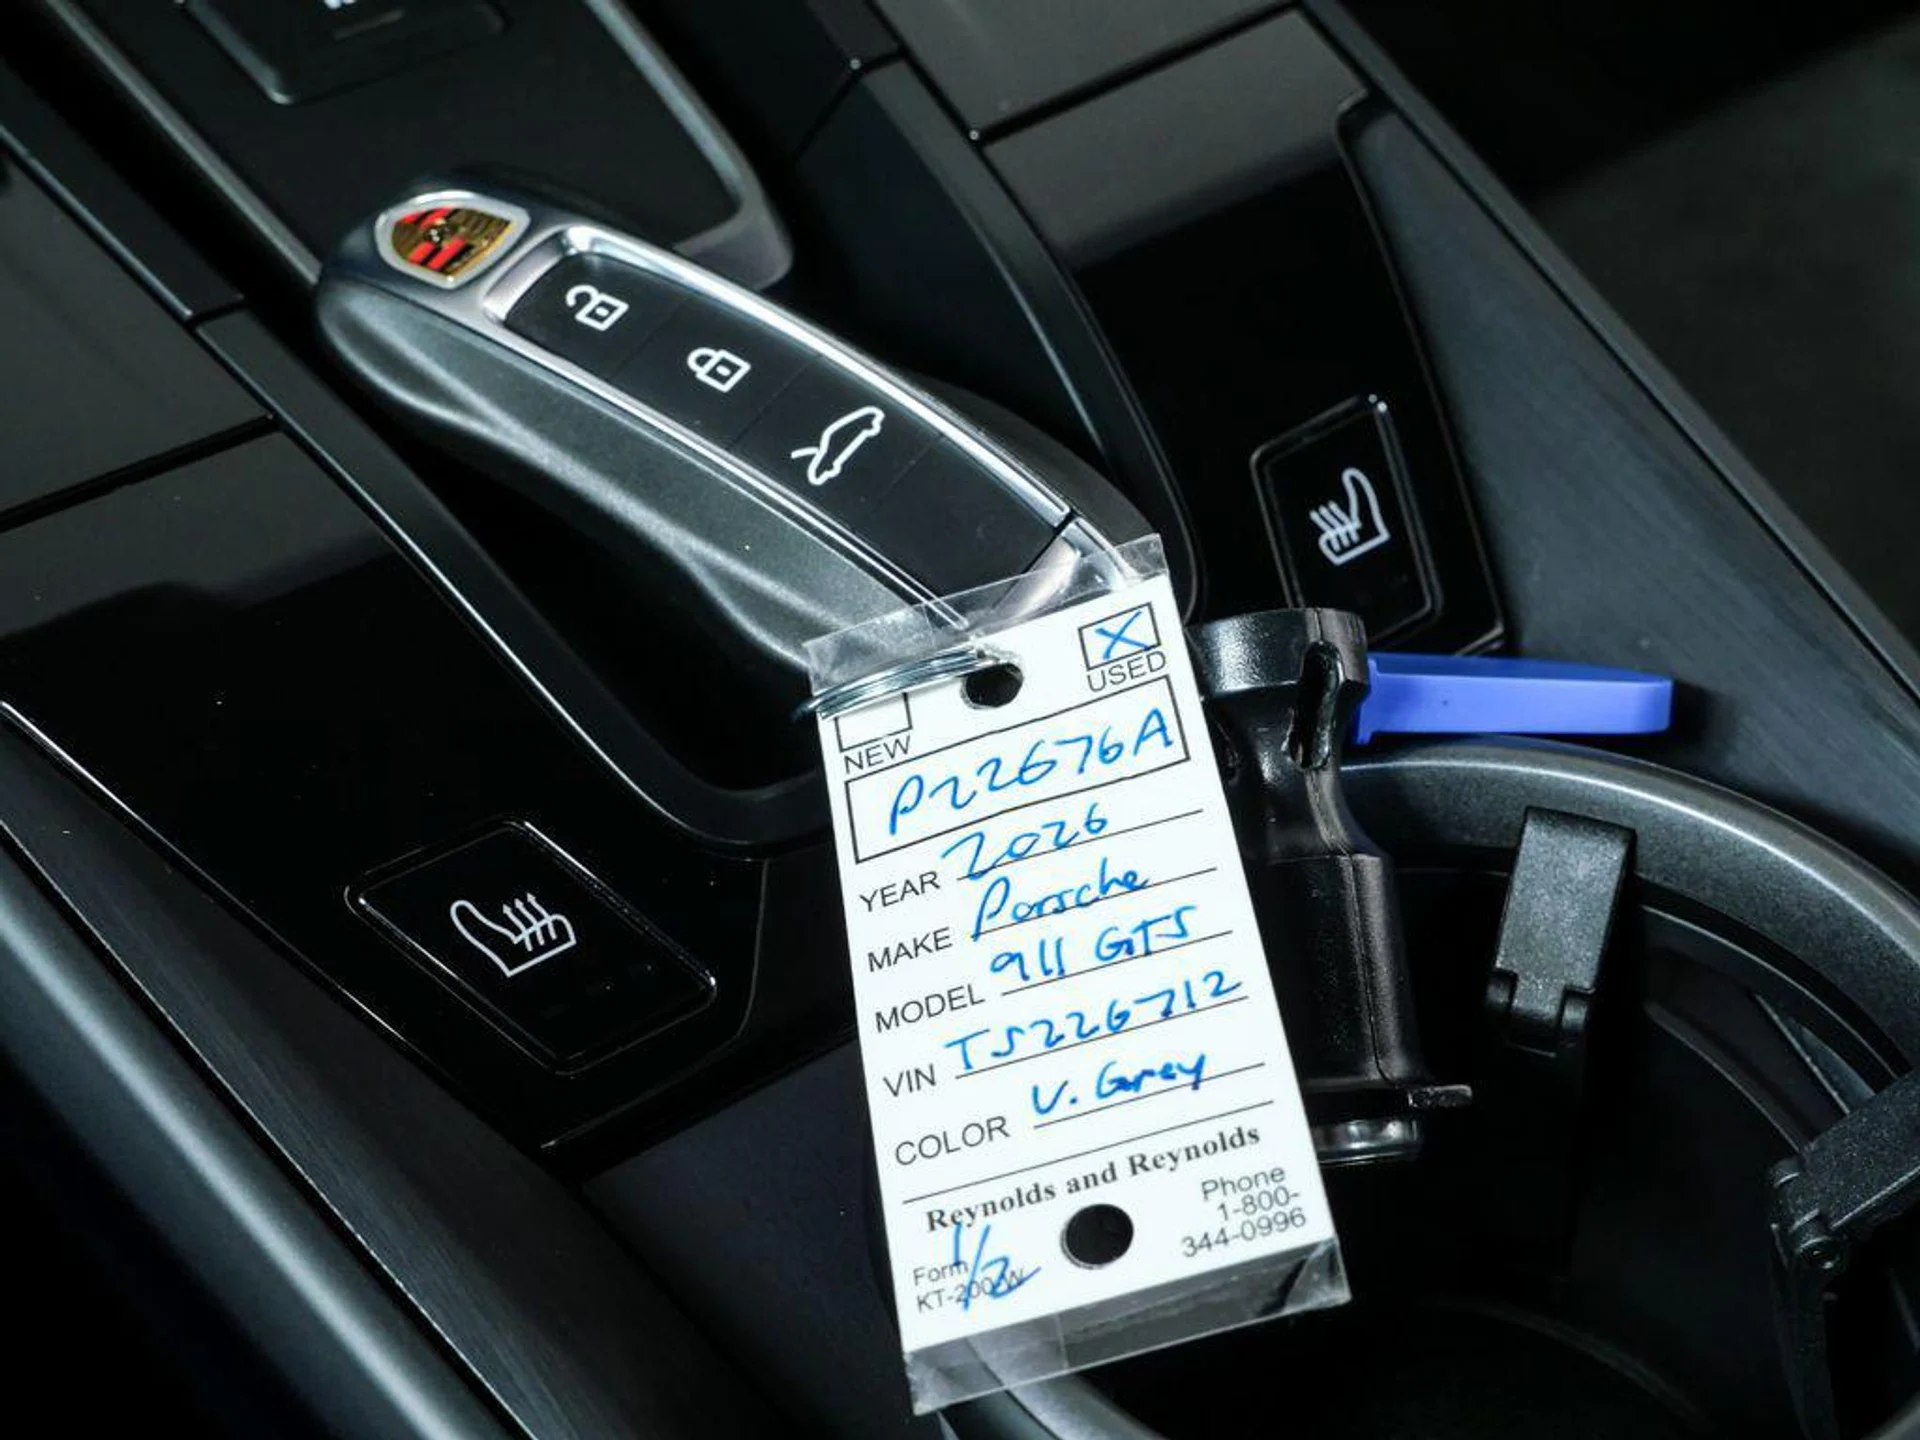 X
USED
NEW
P22676A
YEAR 2026
MAKE Porsche
MODEL 911 GTS
VIN TS226712
COLOR V. Grey
Reynolds and Reynolds
1/2
Form
KT-2000W
Phone
1-800-
344-0996